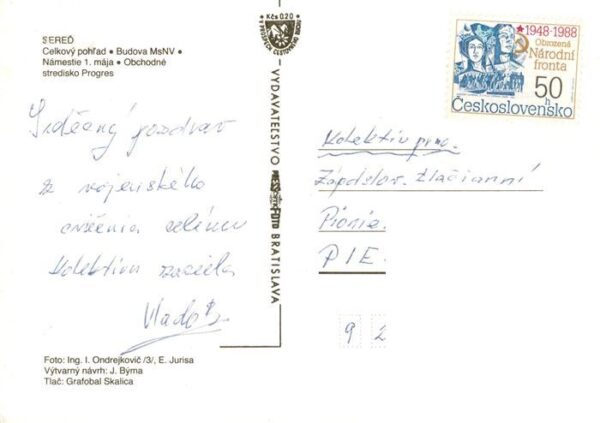 SEREĎ
Celkový pohľad • Budova MsNV •
Námestie 1. mája • Obchodné
stredisko Progres
Kčs 0,20
VYDAVATEĽSTVO PRESSFOTO BRATISLAVA
1948-1988
Obrozená
Národní
fronta
50 h
Československo
Srdečný pozdrav
z vojenského
cvičenia celému
kolektívu zasiela
Vlado
Kolektív prac.
Západoslov. tlačiarní
P I E.
9 2
Foto: Ing. I. Ondrejkovič /3/, E. Jurisa
Výtvarný návrh: J. Býrna
Tlač: Grafobal Skalica